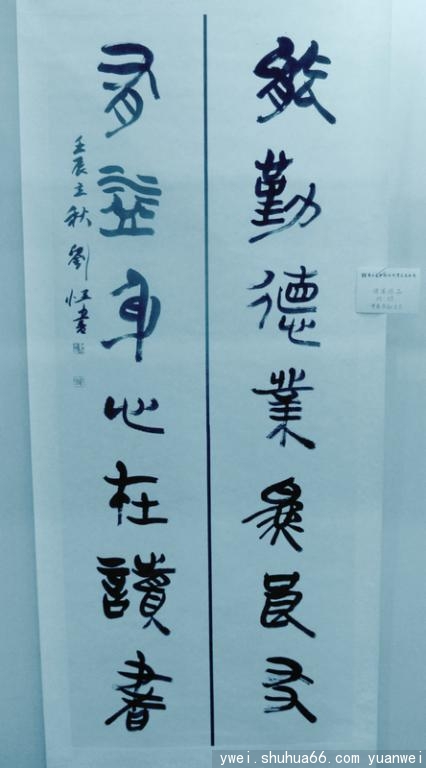 能勤德業爲良友
有益身心在讀書
壬辰立秋劉恒書
ywei.shuhua66.com yuanwei